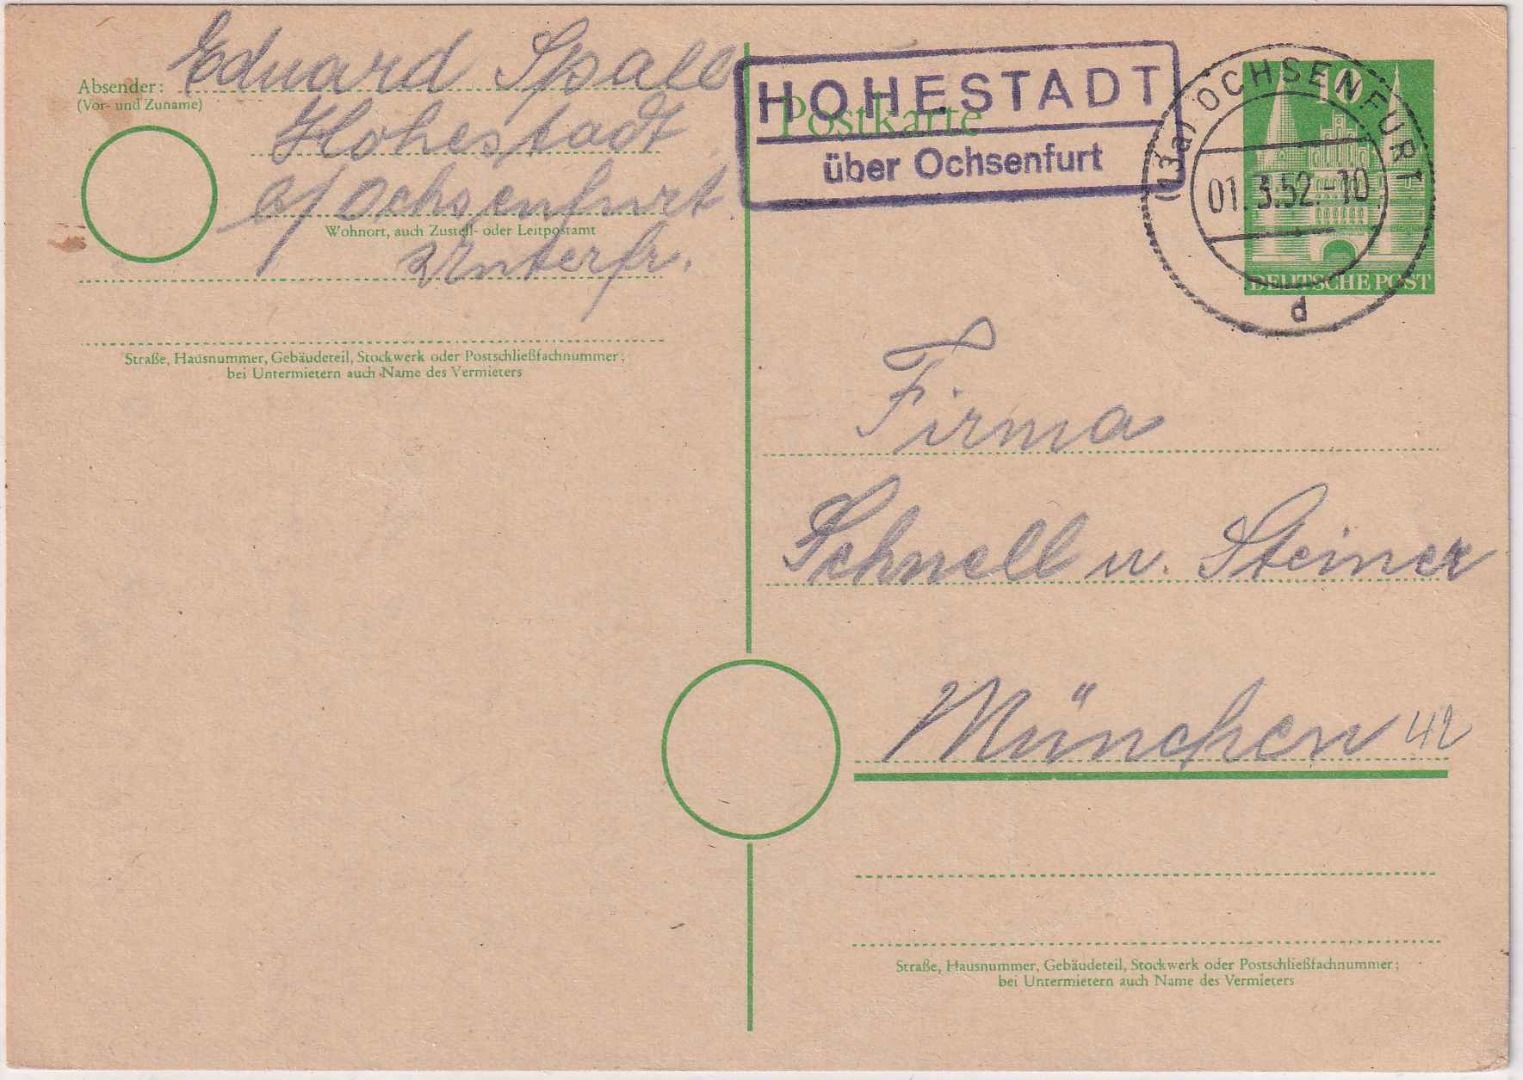 Absender:
(Vor- und Zuname)
Eduard Spall
Hohestadt
a/Ochsenfurt
Wohnort, auch Zustell- oder Leitpostamt
Unterfr.
Straße, Hausnummer, Gebäudeteil, Stockwerk oder Postschließfachnummer;
bei Untermietern auch Name des Vermieters
Postkarte
HOHESTADT
über Ochsenfurt
(13a) OCHSENFURT
01.3.52.-10
d
10
DEUTSCHE POST
Firma
Schnell u. Steiner
München 42
Straße, Hausnummer, Gebäudeteil, Stockwerk oder Postschließfachnummer;
bei Untermietern auch Name des Vermieters